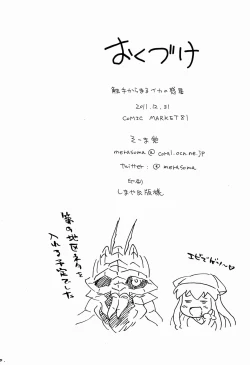 おくづけ
触手からまるイカの惑星
2011.12.31
COMIC MARKET 81
そーま竜
merasoma@coral.ocn.ne.jp
Twitter:@merasoma
印刷
しまや出版様
エビでゲソ〜♡